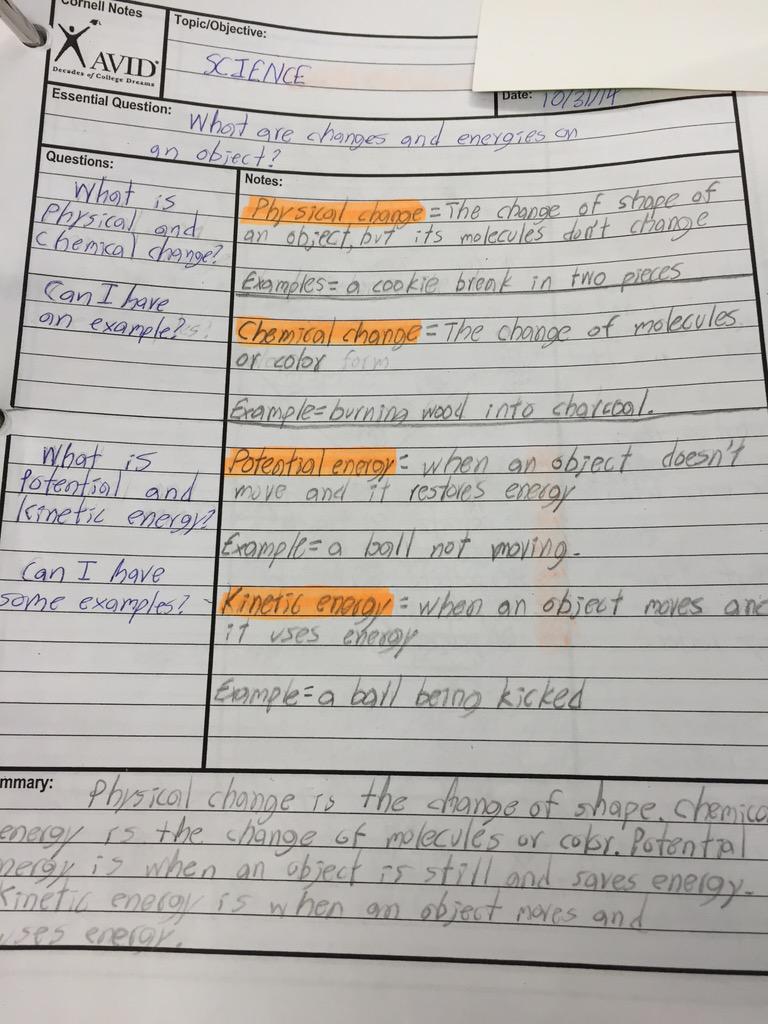 Cornell Notes
Topic/Objective:
AVID
Decades of College Dreams
SCIENCE
Date: 10/31/14
Essential Question: What are changes and energies on
an object?
Questions:
What is
Physical and
Chemical change?
Can I have
an example?
What is
Potential and
Kinetic energy?
Can I have
some examples?
Notes:
Physical change = The change of shape of
an object, but its molecules don't change
Examples = a cookie break in two pieces
Chemical change = The change of molecules
or color form
Example = burning wood into charcoal.
Potential energy = when an object doesn't
move and it restores energy
Example = a ball not moving.
Kinetic energy = when an object moves and
it uses energy
Example = a ball being kicked
mmary: Physical change is the change of shape. Chemica
energy is the change of molecules or color. Potential
nergy is when an object is still and saves energy.
Kinetic energy is when an object moves and
uses energy.